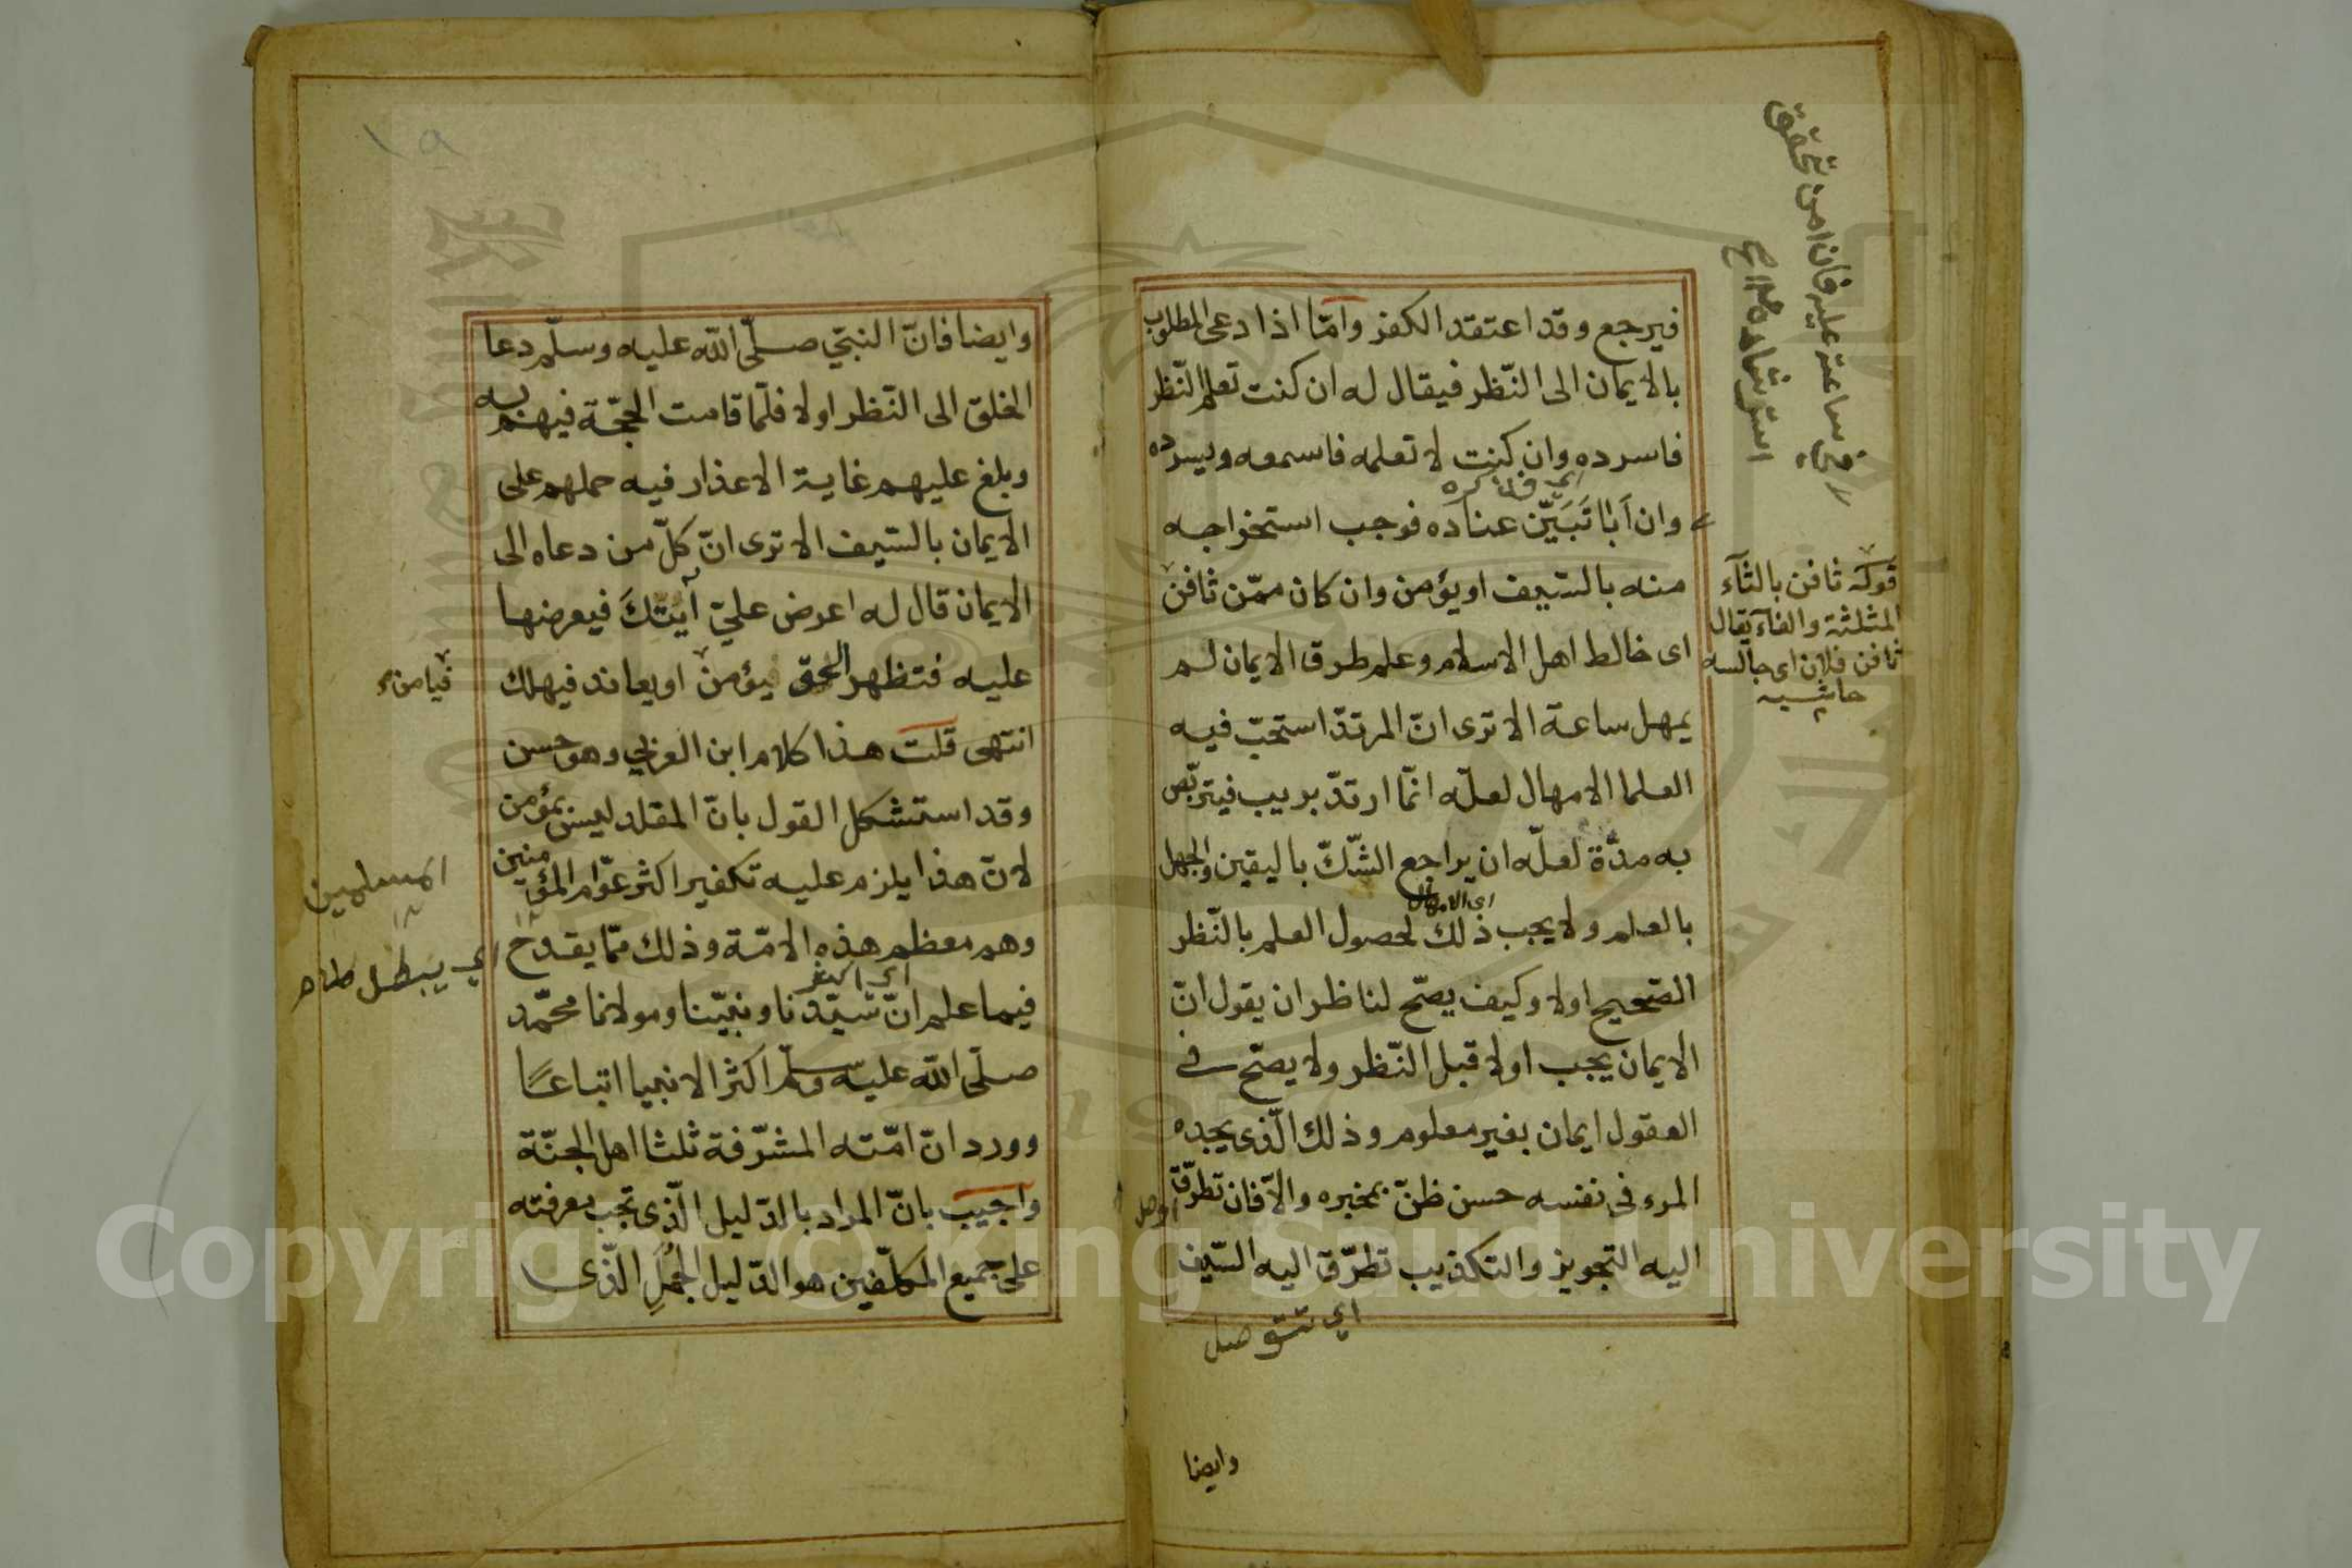 فيرجع وقد اعتقد الكفر وامّا اذا دعى المطلوب
بالايمان الى النّظر فيقال له ان كنت تعلم النّظر
فاسرده وان كنت لا تعلمه فاسمعه ويسرده
وان اَبٰا تَبَيَّن عناده فوجب استخراجه
منه بالسّيف او يؤمن وان كان ممّن ثافن
اى خالط اهل الاسلام وعلم طرق الايمان لم
يمهل ساعة الا ترى انّ المرتدّ استحبّ فيه
العلما الامهال لعلّه انّما ارتدّ بريب فيتربّص
به مدّة لعلّه ان يراجع الشّكّ باليقين والجهل
اى الامهال
بالعلم ولا يجب ذلك لحصول العلم بالنّظر
الصّحيح اولا وكيف يصحّ لناظر ان يقول انّ
الايمان يجب اولا قبل النّظر ولا يصحّ فى
العقول ايمان بغير معلوم وذلك الّذى يجده
المرء فى نفسه حسن ظنّ بمخبره والاّ فان تطرّق
اليه التجويز والتكذيب تطرّق اليه السّيف
اي تتوصل
وايضا
قوله ثافن بالثآء
المثلثة والفآء يقال
ثافن فلان اى جالسه
حاشيه
وايضا فانّ النبيّ صلّى اللّه عليه وسلّم دعا
الخلق الى النّظر اولا فلمّا قامت الحجّة فيهم به
وبلغ عليهم غاية الاعذار فيه حملهم على
الايمان بالسّيف الا ترى انّ كلّ من دعاه الى
الايمان قال له اعرض عليّ آيَتَكَ فيعرضها
عليه فتظهر الحق يؤمن او يعاند فيهلك
فيامن
انتهى قلت هذا كلام ابن العربي وهو حسن
وقد استشكل القول بانّ المقلد ليس بمؤمن
لانّ هذا يلزم عليه تكفير اكثر عوّام المؤمنين
المسلمين
وهم معظم هذه الامّة وذلك ممّا يقدح
اي يبطل
فيما علم انّ سيّدنا ونبيّنا ومولانا محمّد
صلّى اللّه عليه وسلّم اكثر الانبيا اتباعًا
وورد انّ امّته المشرّفة ثلثا اهل الجنّة
واجيب بانّ المراد بالدّليل الّذى تجب معرفته
على جميع المكلّفين هو الدّليل الجُمْلِ الّذى